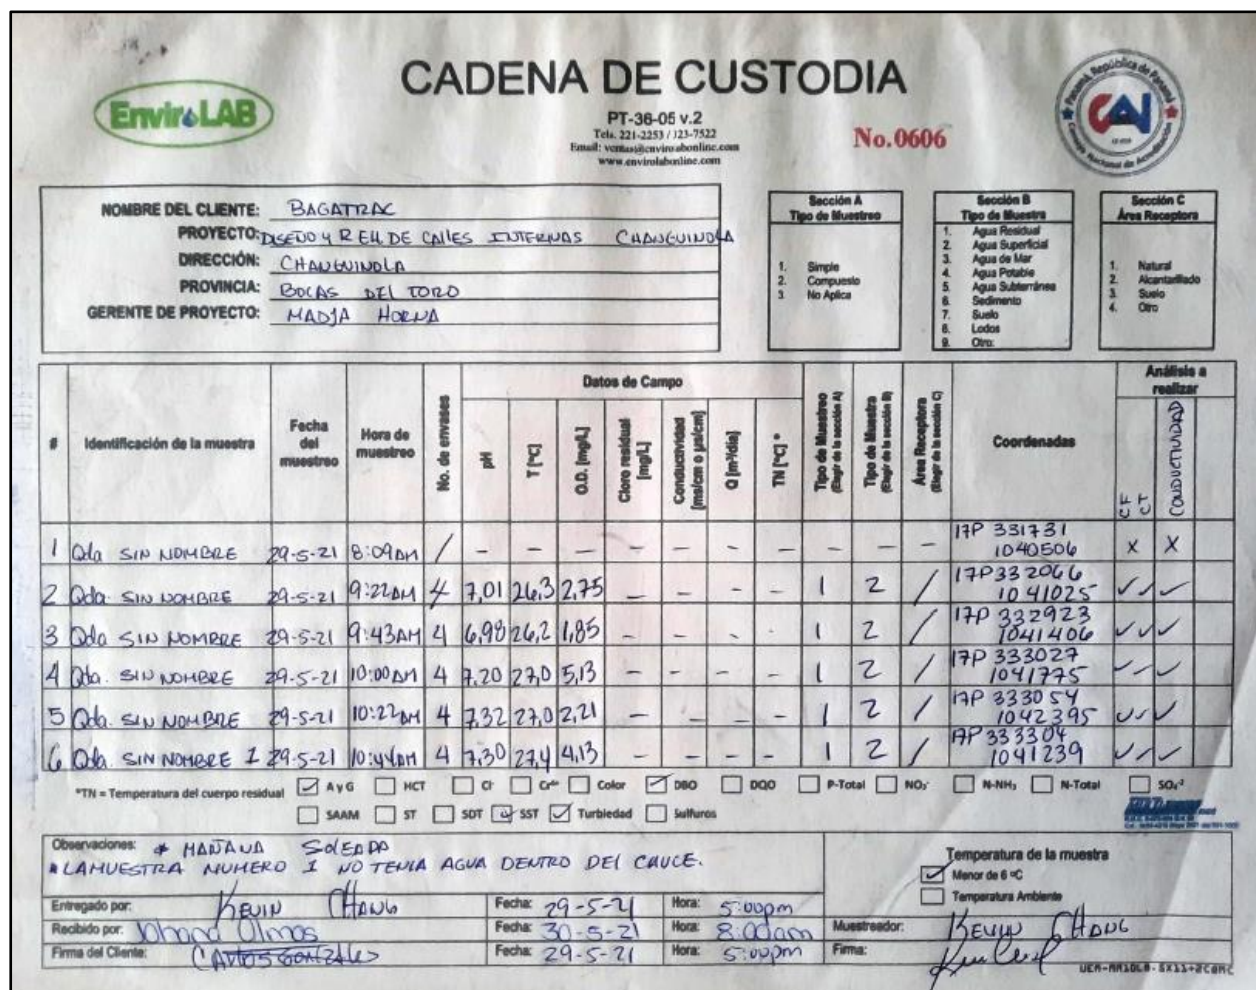 EnviroLAB
CADENA DE CUSTODIA
PT-36-05 v.2
Tels. 221-2253 / 323-7522
Email: ventas@envirolabonline.com
www.envirolabonline.com
No.0606
República de Panamá
CNA
Consejo Nacional de Acreditación
NOMBRE DEL CLIENTE: BAGATRAC
PROYECTO: DISEÑO Y REH. DE CALLES INTERNAS CHANGUINOLA
DIRECCIÓN: CHANGUINOLA
PROVINCIA: BOCAS DEL TORO
GERENTE DE PROYECTO: MADJA HORNA
Sección A
Tipo de Muestreo
1. Simple
2. Compuesto
3. No Aplica
Sección B
Tipo de Muestra
1. Agua Residual
2. Agua Superficial
3. Agua de Mar
4. Agua Potable
5. Agua Subterránea
6. Sedimento
7. Suelo
8. Lodos
9. Otro:
Sección C
Área Receptora
1. Natural
2. Alcantarillado
3. Suelo
4. Otro
# Identificación de la muestra Fecha del muestreo Hora de muestreo No. de envases
Datos de Campo
pH T [°C] O.D. [mg/L] Cloro residual [mg/L] Conductividad [ms/cm o µs/cm] Q [m³/día] TN [°C] *
Tipo de Muestreo (Elegir de la sección A) Tipo de Muestra (Elegir de la sección B) Área Receptora (Elegir de la sección C)
Coordenadas
Análisis a realizar
CF CT CONDUCTIVIDAD
1 Qda SIN NOMBRE 29-5-21 8:09AM / - - - - - - - - - - 17P 331731 1040506 X X
2 Qda SIN NOMBRE 29-5-21 9:22AM 4 7,01 26,3 2,75 - - - - 1 2 / 17P 332066 1041025 ✓ ✓ ✓
3 Qda SIN NOMBRE 29-5-21 9:43AM 4 6,98 26,2 1,85 - - - - 1 2 / 17P 332923 1041406 ✓ ✓ ✓
4 Qda. SIN NOMBRE 29-5-21 10:00AM 4 7,20 27,0 5,13 - - - - 1 2 / 17P 333027 1041775 ✓ ✓ ✓
5 Qda. SIN NOMBRE 29-5-21 10:22AM 4 7,32 27,0 2,21 - - - - 1 2 / 17P 333054 1042395 ✓ ✓ ✓
6 Qda. SIN NOMBRE 1 29-5-21 10:44AM 4 7,30 27,4 4,13 - - - - 1 2 / 17P 333304 1041239 ✓ ✓ ✓
*TN = Temperatura del cuerpo residual ☑ A y G ☐ HCT ☐ Cl⁻ ☐ Cr⁶⁺ ☐ Color ☑ DBO ☐ DQO ☐ P-Total ☐ NO₃⁻ ☐ N-NH₃ ☐ N-Total ☐ SO₄⁻²
☐ SAAM ☐ ST ☐ SDT ☑ SST ☑ Turbiedad ☐ Sulfuros
Observaciones: * MAÑANA SOLEADA
* LA MUESTRA NUMERO 1 NO TENIA AGUA DENTRO DEL CAUCE.
Temperatura de la muestra
☑ Menor de 6 ºC
☐ Temperatura Ambiente
Entregado por: KEVIN CHANG Fecha: 29-5-21 Hora: 5:00pm
Recibido por: Johana Olmos Fecha: 30-5-21 Hora: 8:00am
Muestreador: KEVIN CHANG
Firma del Cliente: CARLOS GONZALES Fecha: 29-5-21 Hora: 5:00pm
Firma: